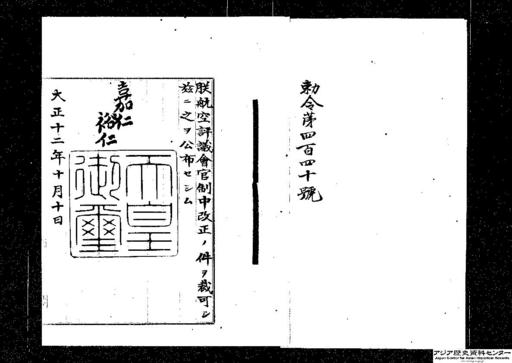 勅令第四百四十號
朕航空評議會官制中改正ノ件ヲ裁可シ
玆ニ之ヲ公布セシム
嘉仁
裕仁
天皇
御璽
大正十二年十月十日
アジア歴史資料センター
Japan Center for Asian Historical Records